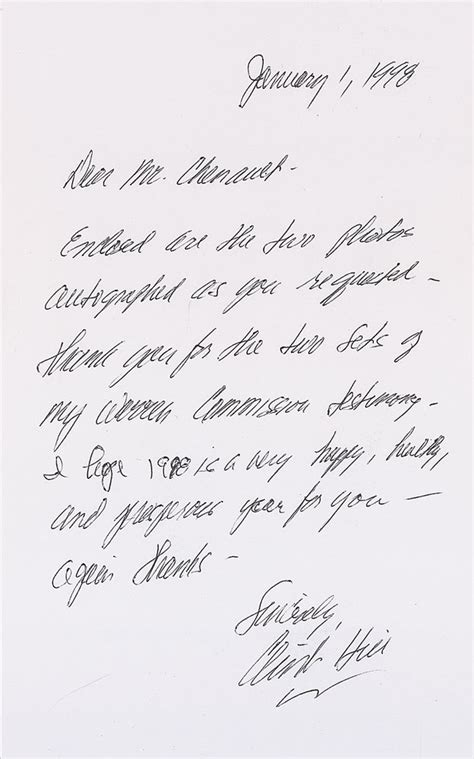 January 1, 1998
Dear Mr. Chenault -
Enclosed are the two photos
autographed as you requested -
thank you for the two sets of
my Warren Commission testimony -
I hope 1998 is a very happy, healthy,
and prosperous year for you -
again thanks -
Sincerely,
Clint Hill